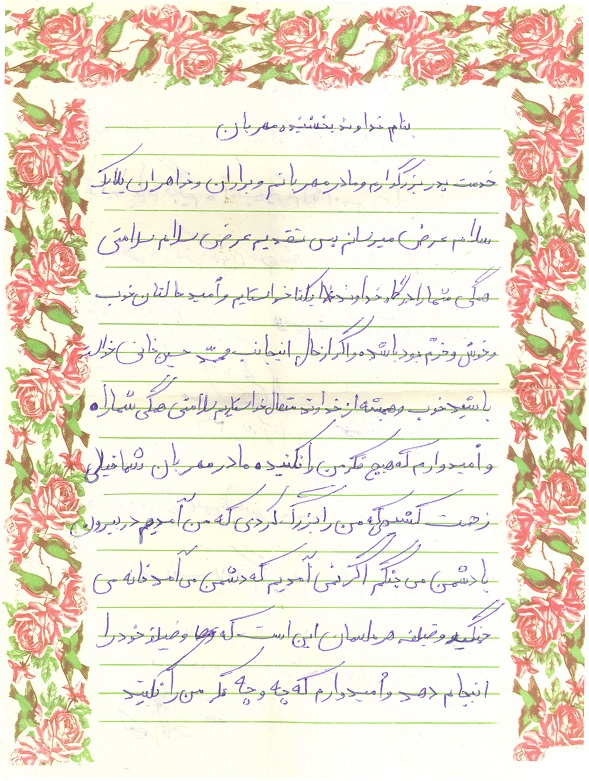 بنام خداوند بخشنده مهربان
خدمت پدر بزرگوارم و مادر مهربانم و برادران و خواهران یکایک
سلام عرض میرسانم پس تقدیم عرض سلام سلامتی
همگی شما را درگاه خداوند یکتا خواستایم و امید حالتان خوب
و خوش و خرم بود باشد و اگر از حال اینجانب محمد حسین خانی خواله
باشید خوب و همیشه از خداوند متعال خواستایم سلامتی همگی شما را
و امیدوارم که هیچ فکر من را نکنید مادر مهربان شما خیلی
زهمت کشیدی که من را بزرگ کردی که من آمدیم در بیرون
با دشمن می جنگم اگر نمی آمدیم که دشمن می آمد خانه می
جنگید وضیفه هر مسلمان این است که وضیفه خود را
انجام دهد و امیدوارم که چه و چه فکر من را نکنید